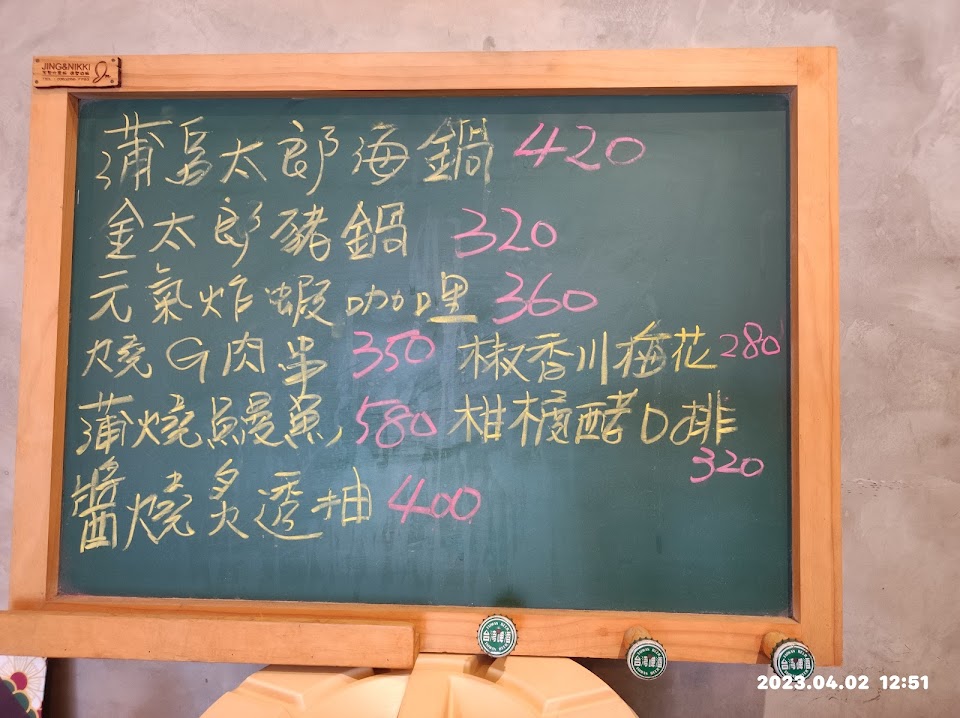 JING&NIKKI
蒲島太郎海鍋 420
金太郎豬鍋 320
元氣炸蝦咖哩 360
燒G肉串 350 椒香川梅花 280
蒲燒鰻魚 580 柑橘醋D排 320
醬燒炙透抽 400
台灣啤酒
台灣啤酒
台灣啤酒
2023.04.02 12:51